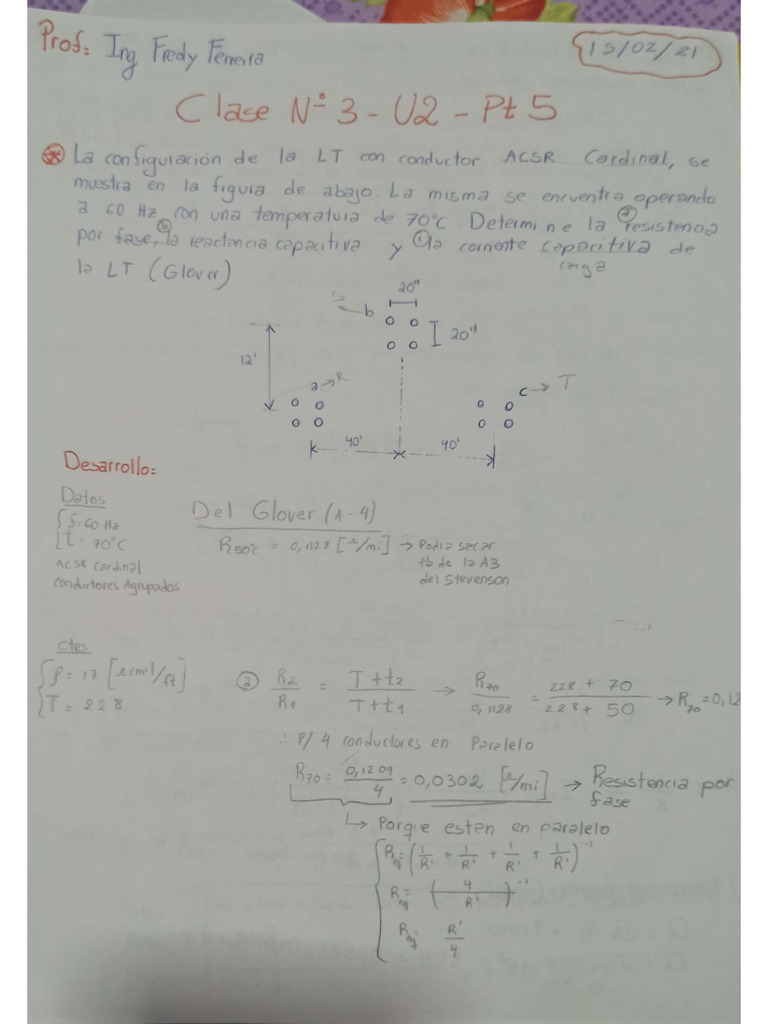 Prof: Ing Fredy Ferreira
15/02/21
Clase N° 3 - U2 - Pt 5
La configuración de la LT con conductor ACSR Cardinal, se
muestra en la figura de abajo. La misma se encuentra operando
a 60 Hz con una temperatura de 70°C. Determine la (a) resistencia
por fase, (b) la reactancia capacitiva y (c) la corriente capacitiva de
carga
la LT (Glover)
20"
b
20"
12'
a → R
c → T
40' 40'
Desarrollo:
Datos
f = 60 Hz
t = 70°C
ACSR Cardinal
Conductores Agrupados
Del Glover (A-4)
R50°C = 0,1128 [Ω/mi] → Podia sacar
tb de la A3
del Stevenson
ctes
ρ = 17 [Ωcmil/ft]
T = 228
(a) R2/R1 = T+t2/T+t1 → R70/0,1128 = 228 + 70/228 + 50 → R70=0,12
∴ P/ 4 conductores en Paralelo
R70 = 0,1209/4 = 0,0302 [Ω/mi] → Resistencia por
fase
↳ Porque estan en paralelo
Req = (1/R' + 1/R' + 1/R' + 1/R')⁻¹
Req = (4/R')⁻¹
Req = R'/4